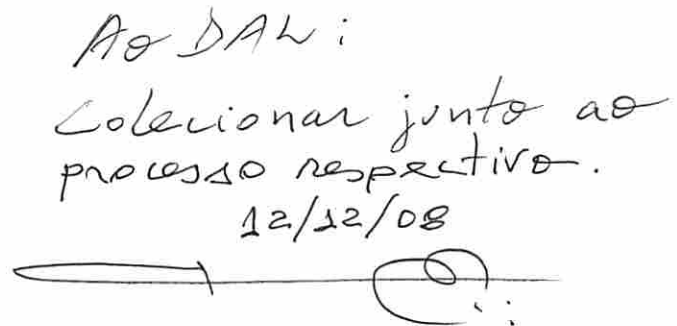 Ao DAL:
Colecionar junto ao
processo respectivo.
12/12/08